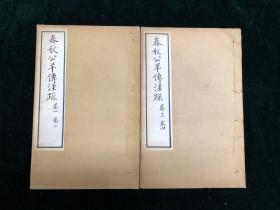 春秋公羊傳注疏 卷一 卷二
春秋公羊傳注疏 卷三 卷四